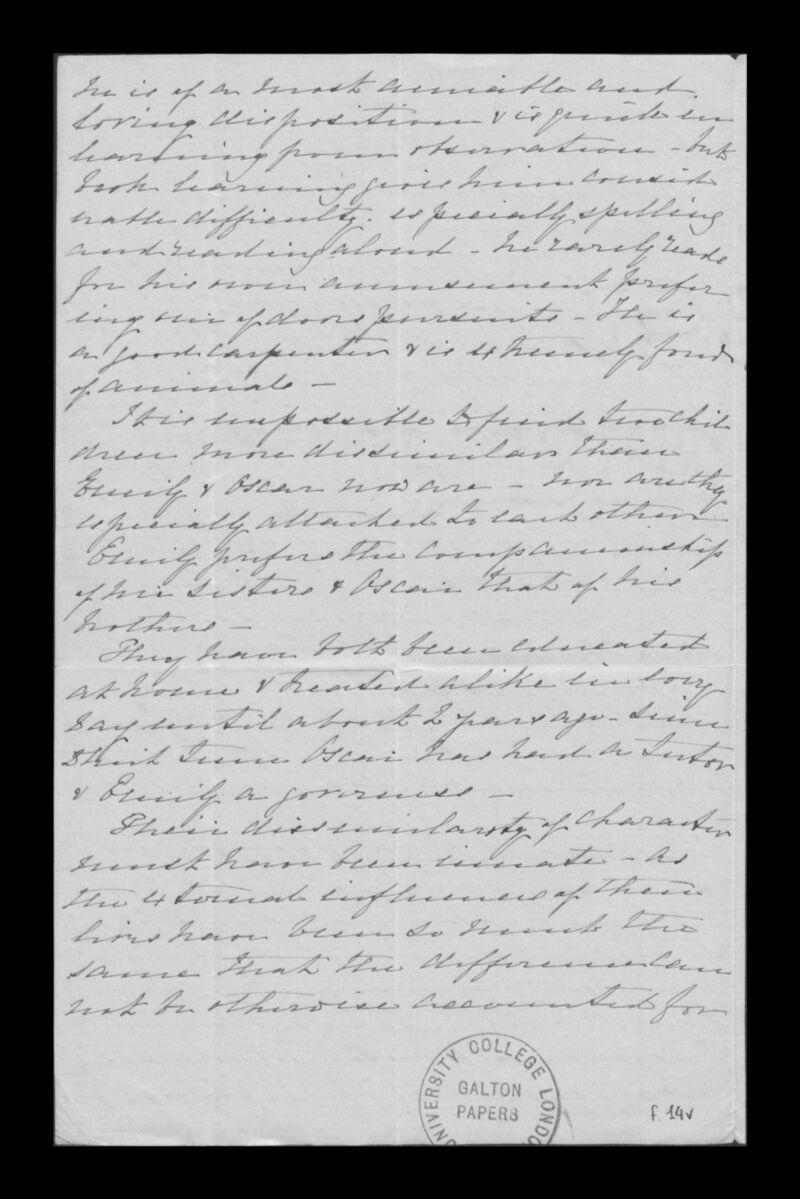 he is of a most amiable and
loving disposition & is quick in
learning from observation - but
book learning gives him consid
erable difficulty. especially spelling
and reading aloud - he rarely reads
for his own amusement prefer
ing out of doors pursuits - He is
a good carpenter & is extremely fond
of animals -
It is impossible to find two chil
dren more dissimilar than
Emily & Oscar now are - nor are they
especially attached to each other
Emily prefers the companionship
of her sisters & Oscar that of his
brothers -
They have both been educated
at home & treated alike in every
way until about 2 years ago - since
that time Oscar has had a tutor
& Emily a governess -
Their dissimilarity of character
must have been innate - as
the external influences of their
lives have been so much the
same that the difference can
not be otherwise accounted for
UNIVERSITY COLLEGE LONDON
GALTON
PAPERS
f. 14v